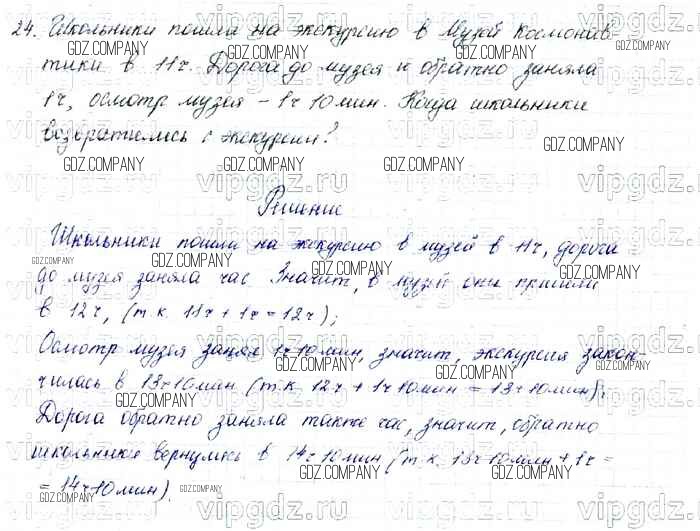 24. Школьники пошли на экскурсию в Музей Космонав-
тики в 11ч. Дорога до музея и обратно заняла
1ч, осмотр музея - 1ч 10мин. Когда школьники
возвратились с экскурсии?
Решение
Школьники пошли на экскурсию в музей в 11ч, дорога
до музея заняла час. Значит, в музей они пришли
в 12ч, (т.к. 11ч + 1ч = 12ч);
Осмотр музея занял 1ч10мин, значит, экскурсия закон-
чилась в 13ч10мин (т.к. 12ч + 1ч10мин = 13ч10мин);
Дорога обратно заняла также час, значит, обратно
школьники вернулись в 14ч10мин (т.к. 13ч10мин + 1ч =
= 14ч10мин).